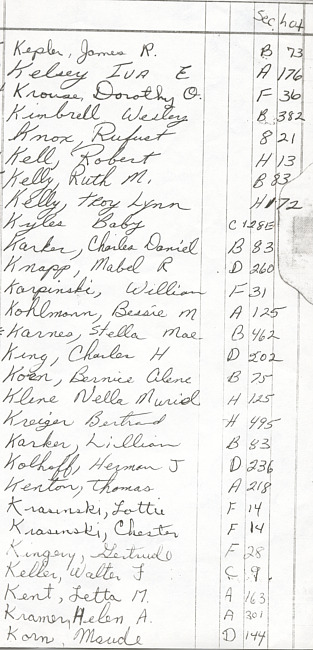 Sec Lot
Kepler, James R. B 73
Kelsey Iva E A 176
Krouse, Dorothy O. F 36
Kimbrell Wesley B 382
Knox, Rufust 8 21
Kell, Robert H 13
Kelly, Ruth M. B 83
Kelly, Troy Lynn H 172
Kyles Baby C 128E
Karker, Charles Daniel B 83
Knapp, Mabel R D 260
Karpinski, William F 31
Kohlmann, Bessie M A 125
Karnes, Stella Mae B 462
King, Charles H D 202
Koen, Bernice Alene B 75
Klene Nella Muriel H 125
Kreiger Bertrad H 495
Karker, Lillian B 83
Kolhoff, Herman J D 236
Kenton, Thomas A 218
Krasinski, Lottie F 14
Krasinski, Chester F 14
Kingery, Gertrude F 28
Keller, Walter F C 9
Kent, Letta M. A 163
Kramer, Helen A. A 301
Korn, Maude D 144